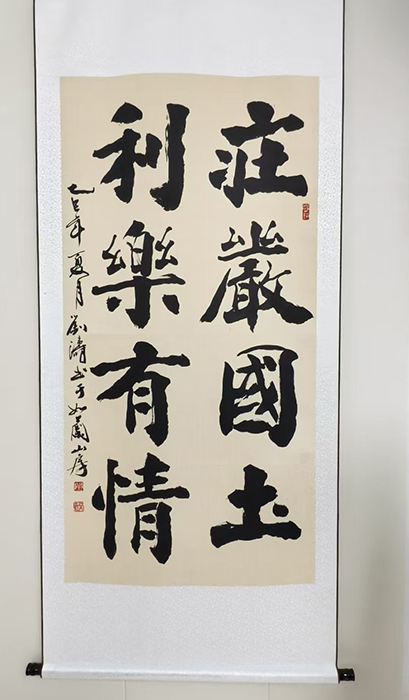 庄嚴國土
利樂有情
乙巳年夏月劉濤书于如蘭山房